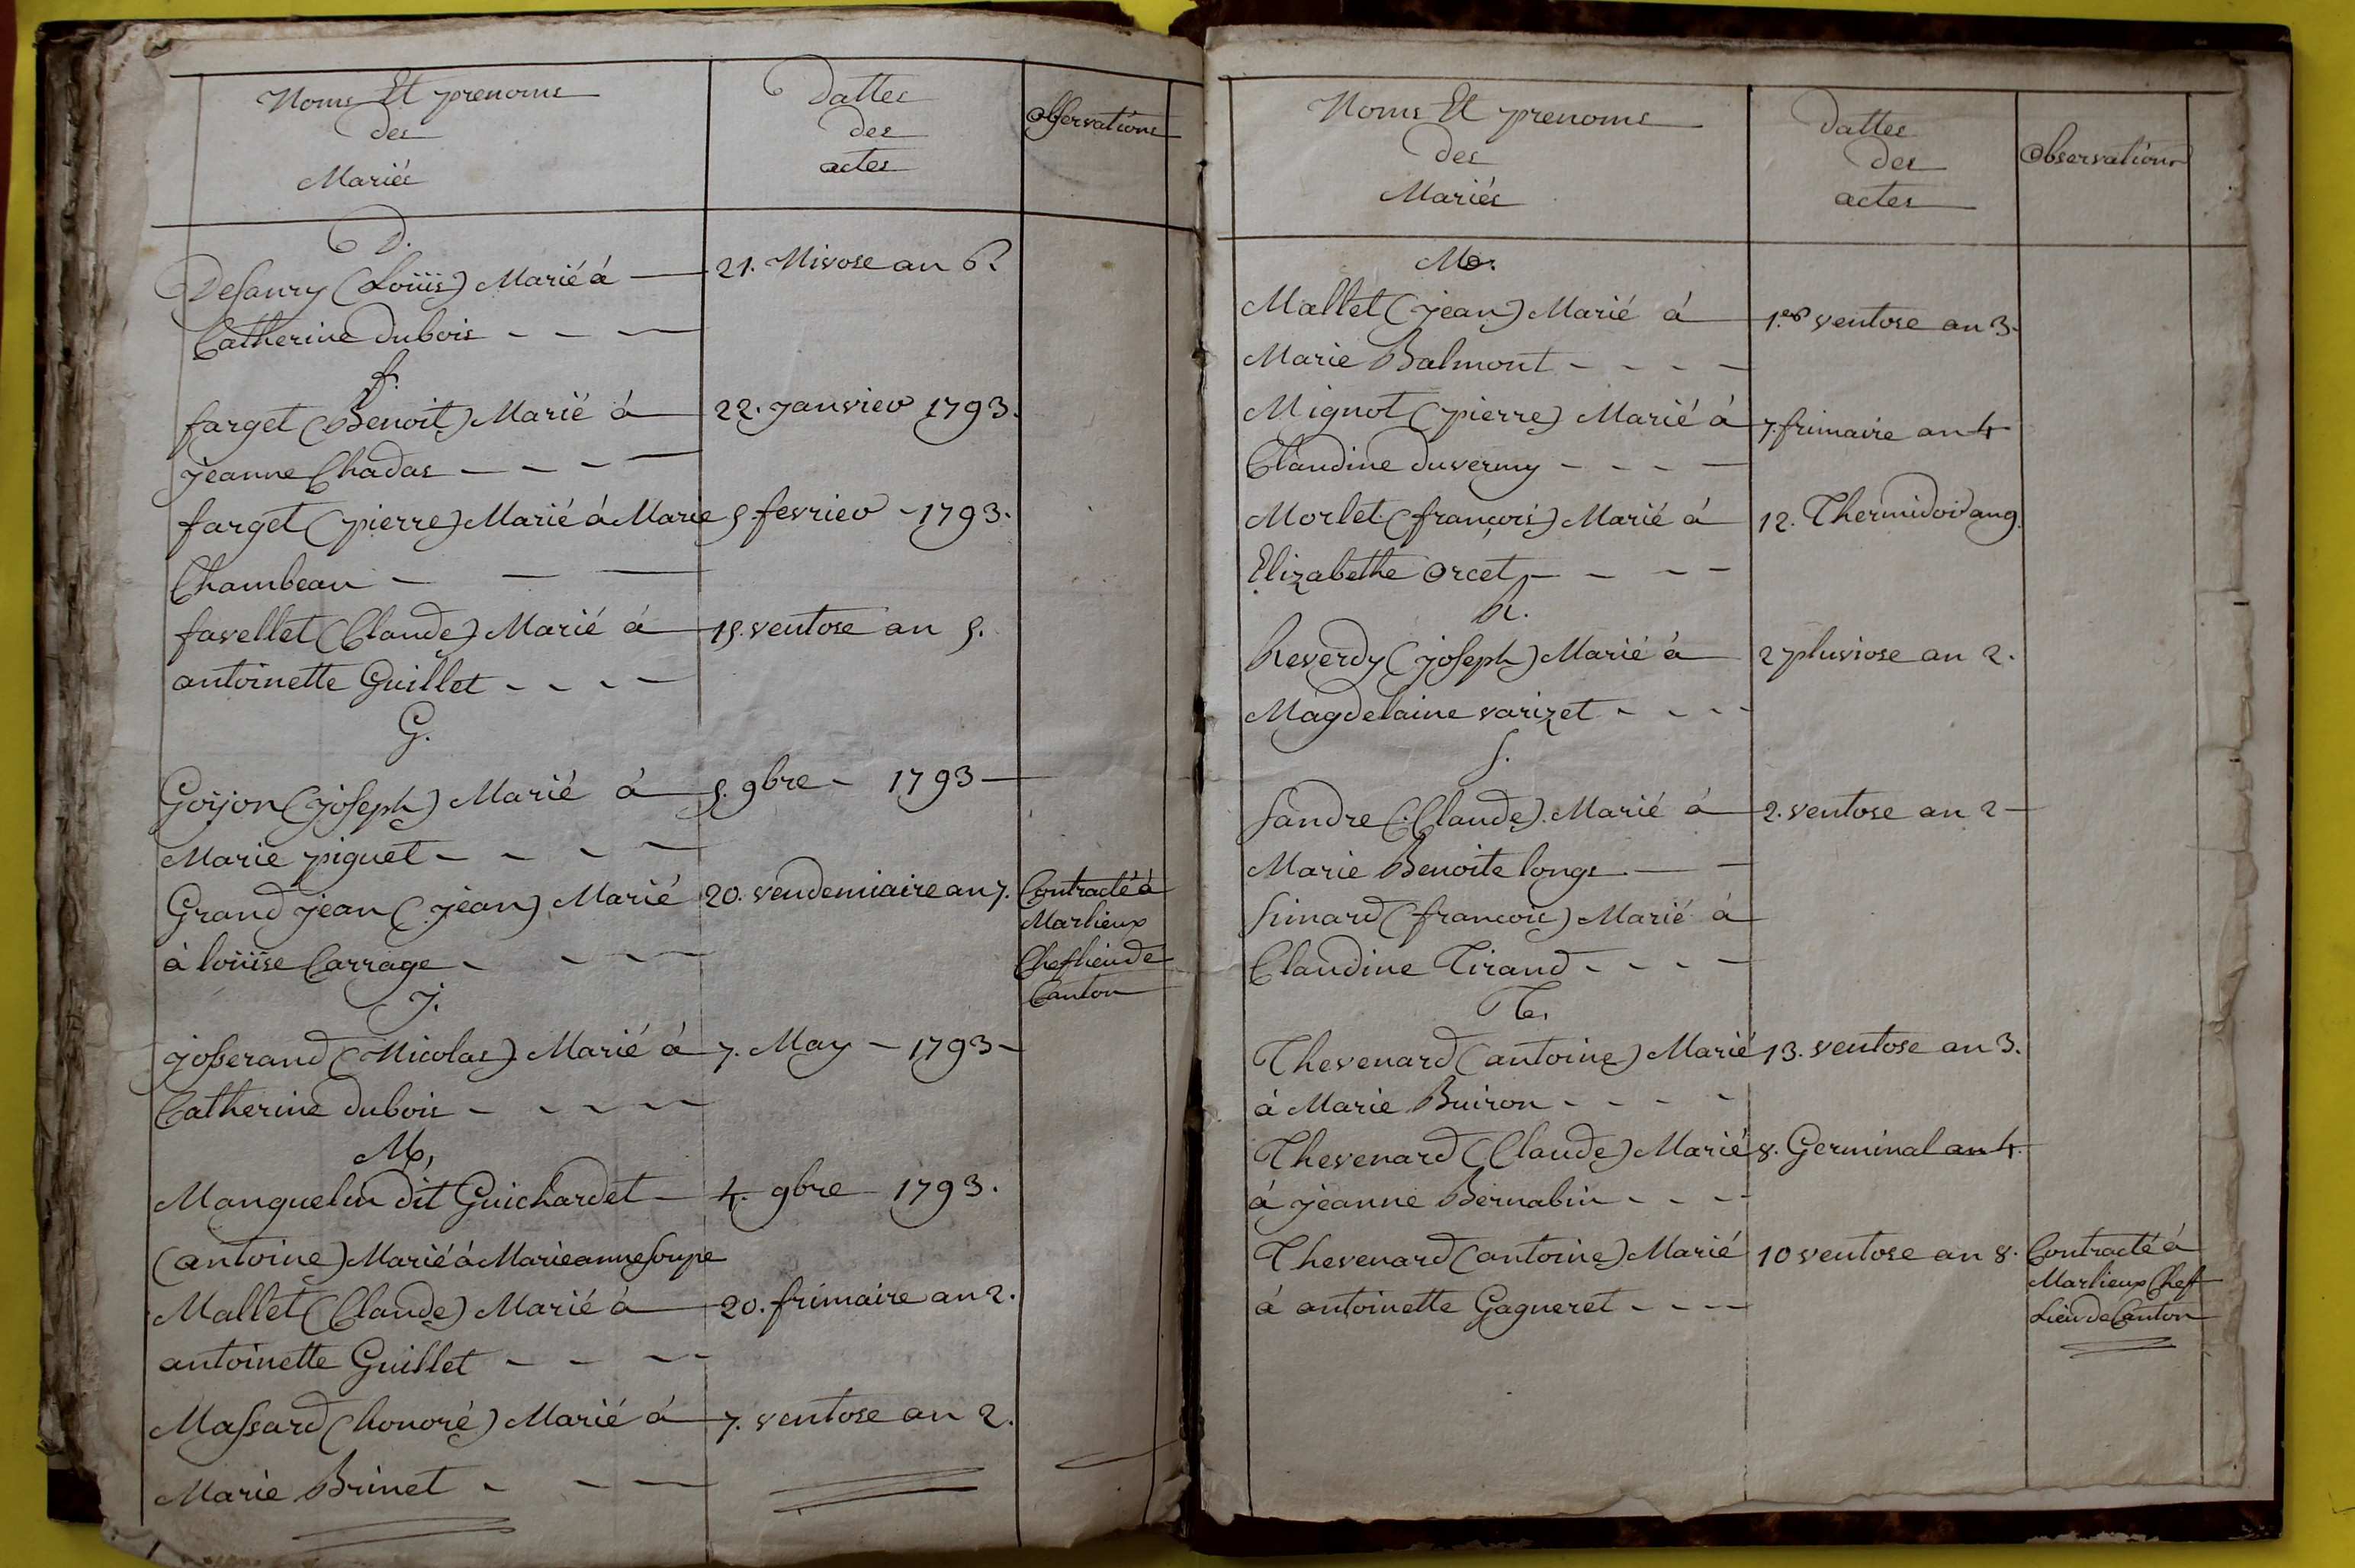 Noms Et prenoms
des
Mariés
Dattes
des
actes
Observations
D.
Desaury (Loüis) Marié à — 21. Nivose an 6.
Catherine dubois - - -
f.
farget (Benoit) Marié à — 22. janvier 1793.
jeanne Chadas - - - -
farget (pierre) Marié à Marie 5 fevrier - 1793.
Chambeau - - -
favellet (Claude) Marié à — 15. ventose an 5.
antoinette Guillet - - - -
G.
Goijon (joseph) Marié à — 5. 9bre - 1793 —
Marie piguet - - - -
Grand jean (jean) Marié 20. vendemiaire an 7. Contracté à
Marlieux
à loüise Carrage - - - -
Chef lieu de
Canton
J.
josserand (Nicolas) Marié à 7. May - 1793 -
Catherine dubois - - - -
M.
Manguelin dit Guichardet - 4. 9bre - 1793.
(antoine) Marié à Marieanne Soupe
Mallet (Claude) Marié à — 20. frimaire an 2.
antoinette Guillet - - - -
Massard (honoré) Marié à — 7. ventose an 2.
Marie Brinet - - -
Noms Et prenoms
des
Mariés
Dattes
des
actes
Observations
M.
Mallet (jean) Marié à — 1.er ventose an 3.
Marie Balmont - - - -
Mignot (pierre) Marié à 7. frimaire an 4
Claudine duverny - - - -
Morlet (françois) Marié à 12. Thermidor an 9.
Elizabethe Orcet - - - -
R.
Reverdy (joseph) Marié à 2 pluviose an 2.
Magdelaine varizet - - - -
S.
Sandre (Claude). Marié à — 2. ventose an 2 —
Marie Benoite longe - -
Simard (françois) Marié à
Claudine Tirand - - - -
T.
Thevenard (antoine) Marié 13. ventose an 3.
à Marie Buiron - - - -
Thevenard (Claude) Marié 8. Germinal an 4.
à jeanne Bernabin - - - -
Thevenard (antoine) Marié 10 ventose an 8. Contracté à
Marlieux Chef
à antoinette Gagneret - - - -
Lieu de Canton